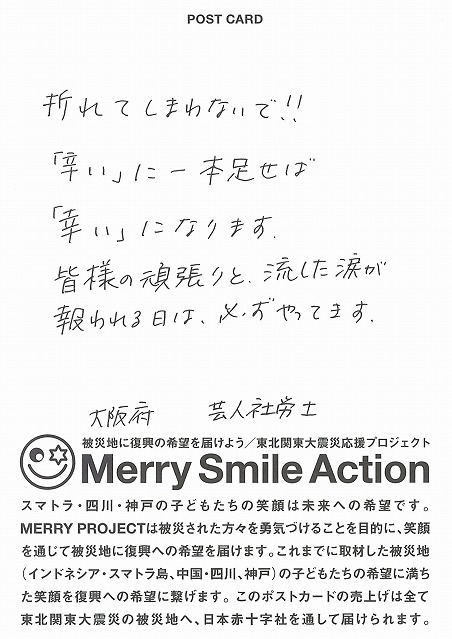 POST CARD
折れてしまわないで!!
「辛い」に一本足せば
「幸い」になります.
皆様の頑張りと、流した涙が
報われる日は、必ずやってきます.
大阪府 芸人社労士
被災地に復興の希望を届けよう／東北関東大震災応援プロジェクト
Merry Smile Action
スマトラ・四川・神戸の子どもたちの笑顔は未来への希望です。
MERRY PROJECTは被災された方々を勇気づけることを目的に、笑顔
を通じて被災地に復興への希望を届けます。これまでに取材した被災地
（インドネシア・スマトラ島、中国・四川、神戸）の子どもたちの希望に満ち
た笑顔を復興への希望に繋げます。このポストカードの売上げは全て
東北関東大震災の被災地へ、日本赤十字社を通して届けられます。